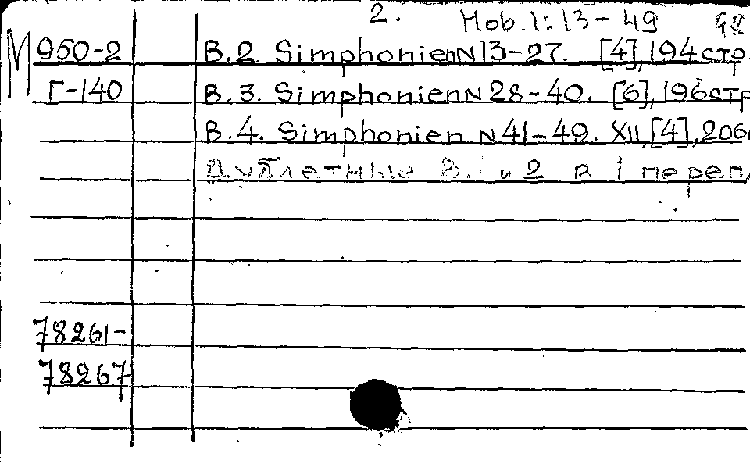 2. Mob. 1: 13-49 98
M 950-2 B.2. Simphonien N 13-27. [4], 194 стр
Г-140 B.3. Simphonien N 28-40. [6], 196 стр
B.4. Simphonien N 41-49. XII, [4], 206
Дублетные B. 1 и 2 в 1 переп.
78261-
78267